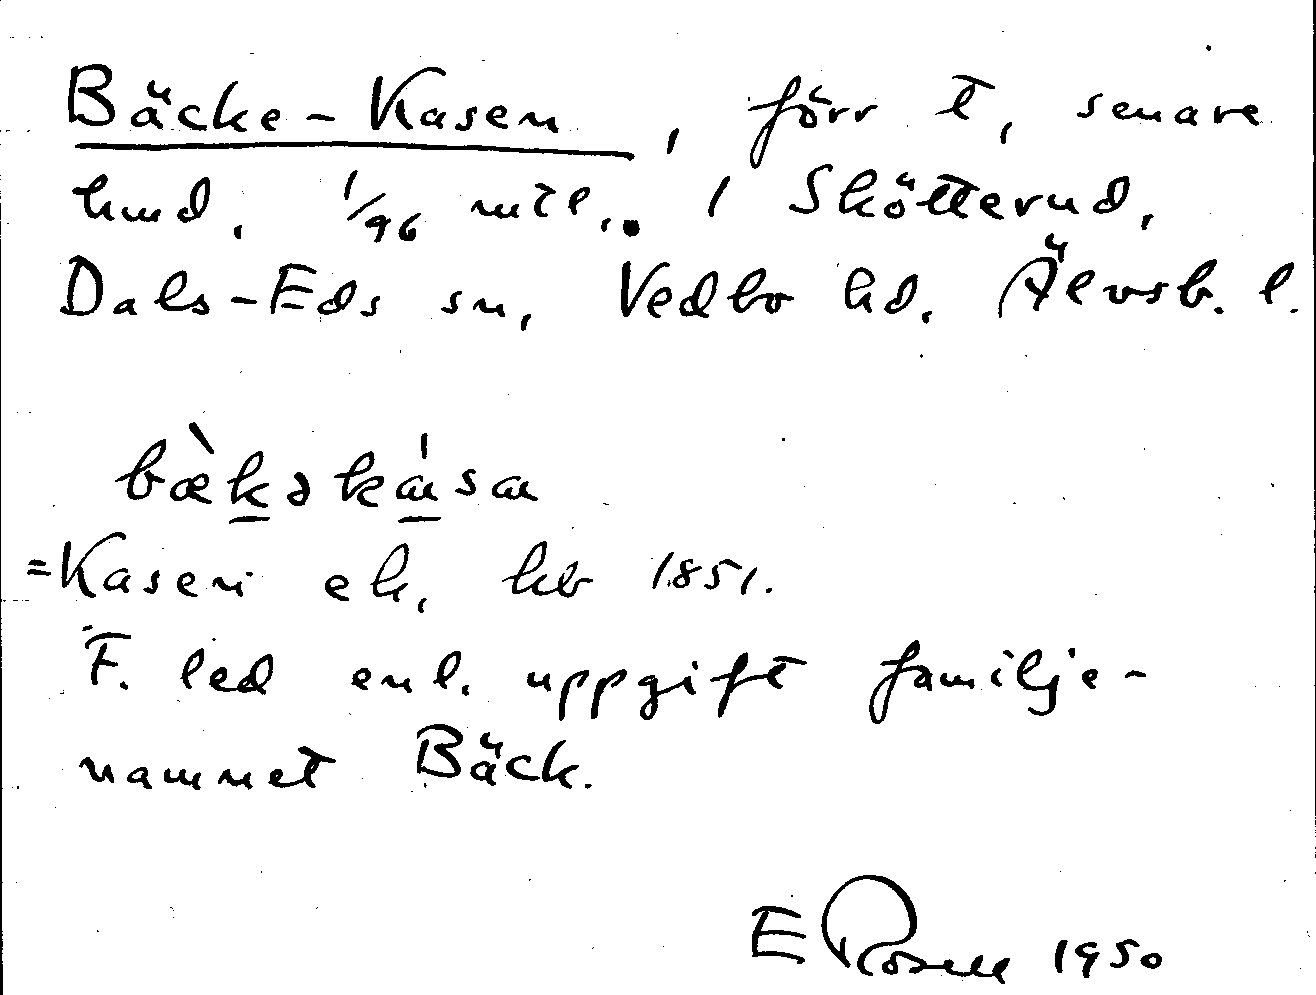 Bäcke-Kasen, förr t, senare
hmd. 1/96 mtl. i Skötterud,
Dals-Eds sn, Vedbo hd. Älvsb. l.
bæ̀kəkása
=Kasen ek, kb 1851.
F. led enl. uppgift familje-
namnet Bäck.
E Rosell 1950